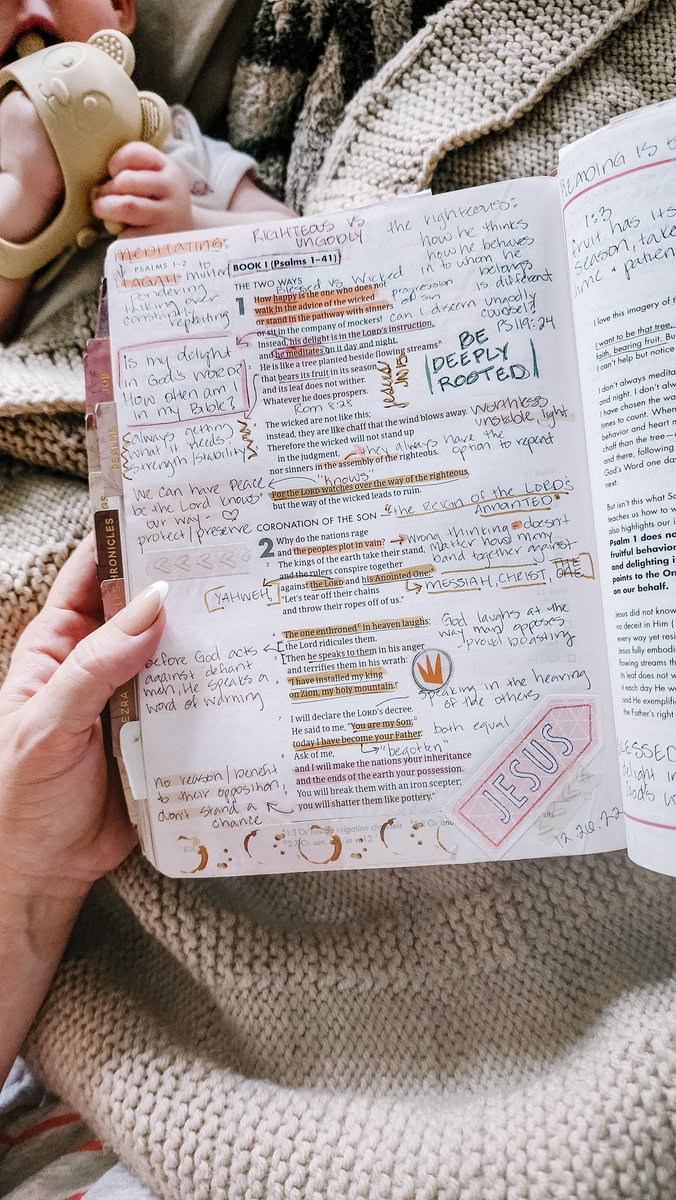 MEDITATING:
HAGAH: mutter
pondering
talking over
constantly
repeating
RIGHTEOUS VS
UNGODLY
the righteous:
how he thinks
how he behaves
to whom he
belongs
is different
PSALMS 1–2
BOOK I (Psalms 1–41)
THE TWO WAYS
Blessed vs Wicked
progression
of sin
1 How happy is the one who does not
walk in the advice of the wicked
or stand in the pathway with sinners
or sit in the company of mockers!
2 Instead, his delight is in the LORD's instruction,
and he meditates on it day and night.
3 He is like a tree planted beside flowing streams
that bears its fruit in its season
and its leaf does not wither.
Whatever he does prospers.
Rom 8:28
can I discern ungodly
counsel?
PS 119:24
Jesus
Jn 15
BE
DEEPLY
ROOTED
Is my delight
in God's word?
How often am I
in my Bible?
always getting
what it needs
strength/stability
4 The wicked are not like this;
instead, they are like chaff that the wind blows away.
5 Therefore the wicked will not stand up
in the judgment,
nor sinners in the assembly of the righteous.
worthless
unstable, light
they always have the
option to repent
"knows"
6 For the LORD watches over the way of the righteous,
but the way of the wicked leads to ruin.
we can have peace
be the Lord "knows"
our way -
protect/preserve
CORONATION OF THE SON
"the REIGN of the LORD'S
ANNOINTED"
2 Why do the nations rage
and the peoples plot in vain?
2 The kings of the earth take their stand,
and the rulers conspire together
against the LORD and his Anointed One:
3 "Let's tear off their chains
and throw their ropes off of us."
wrong thinking doesn't
matter how many
band together against
YAHWEH
MESSIAH, CHRIST, THE
ONE
4 The one enthroned in heaven laughs;
the Lord ridicules them.
5 Then he speaks to them in his anger
and terrifies them in his wrath:
6 "I have installed my king
on Zion, my holy mountain."
God laughs at the
way man opposes
/proud boasting
before God acts
against defiant
men, He speaks a
word of warning
speaking in the hearing
of the others
7 I will declare the LORD's decree.
He said to me, "You are my Son;
today I have become your Father.
8 Ask of me,
and I will make the nations your inheritance
and the ends of the earth your possession.
9 You will break them with an iron scepter;
you will shatter them like pottery."
both equal
"begotten"
no reason/benefit
to their opposition,
don't stand a
chance
JESUS
836
1:3 Or beside irrigation channels
EZRA
CHRONICLES
PSALMS
JOB
READING IS
1:3
fruit has its
season, take
time + patien
I love this imagery of
I want to be that tree,
faith, bearing fruit. Bu
I can't help but notice
I don't always medita
and night. I don't al
I have chosen the wa
times to count. When
behavior and heart
chaff than the tree—
and there, following
God's Word one day
next.
But isn't this what Sc
teaches us how to w
also highlights our i
Psalm 1 does no
fruitful behavior
and delighting i
points to the On
on our behalf.
Jesus did not know
no deceit in Him (
every way yet resi
Jesus fully embodi
flowing streams th
its leaf does not w
it each day He we
and He exemplifie
the Father's right
BLESSED
delight in
God's wo